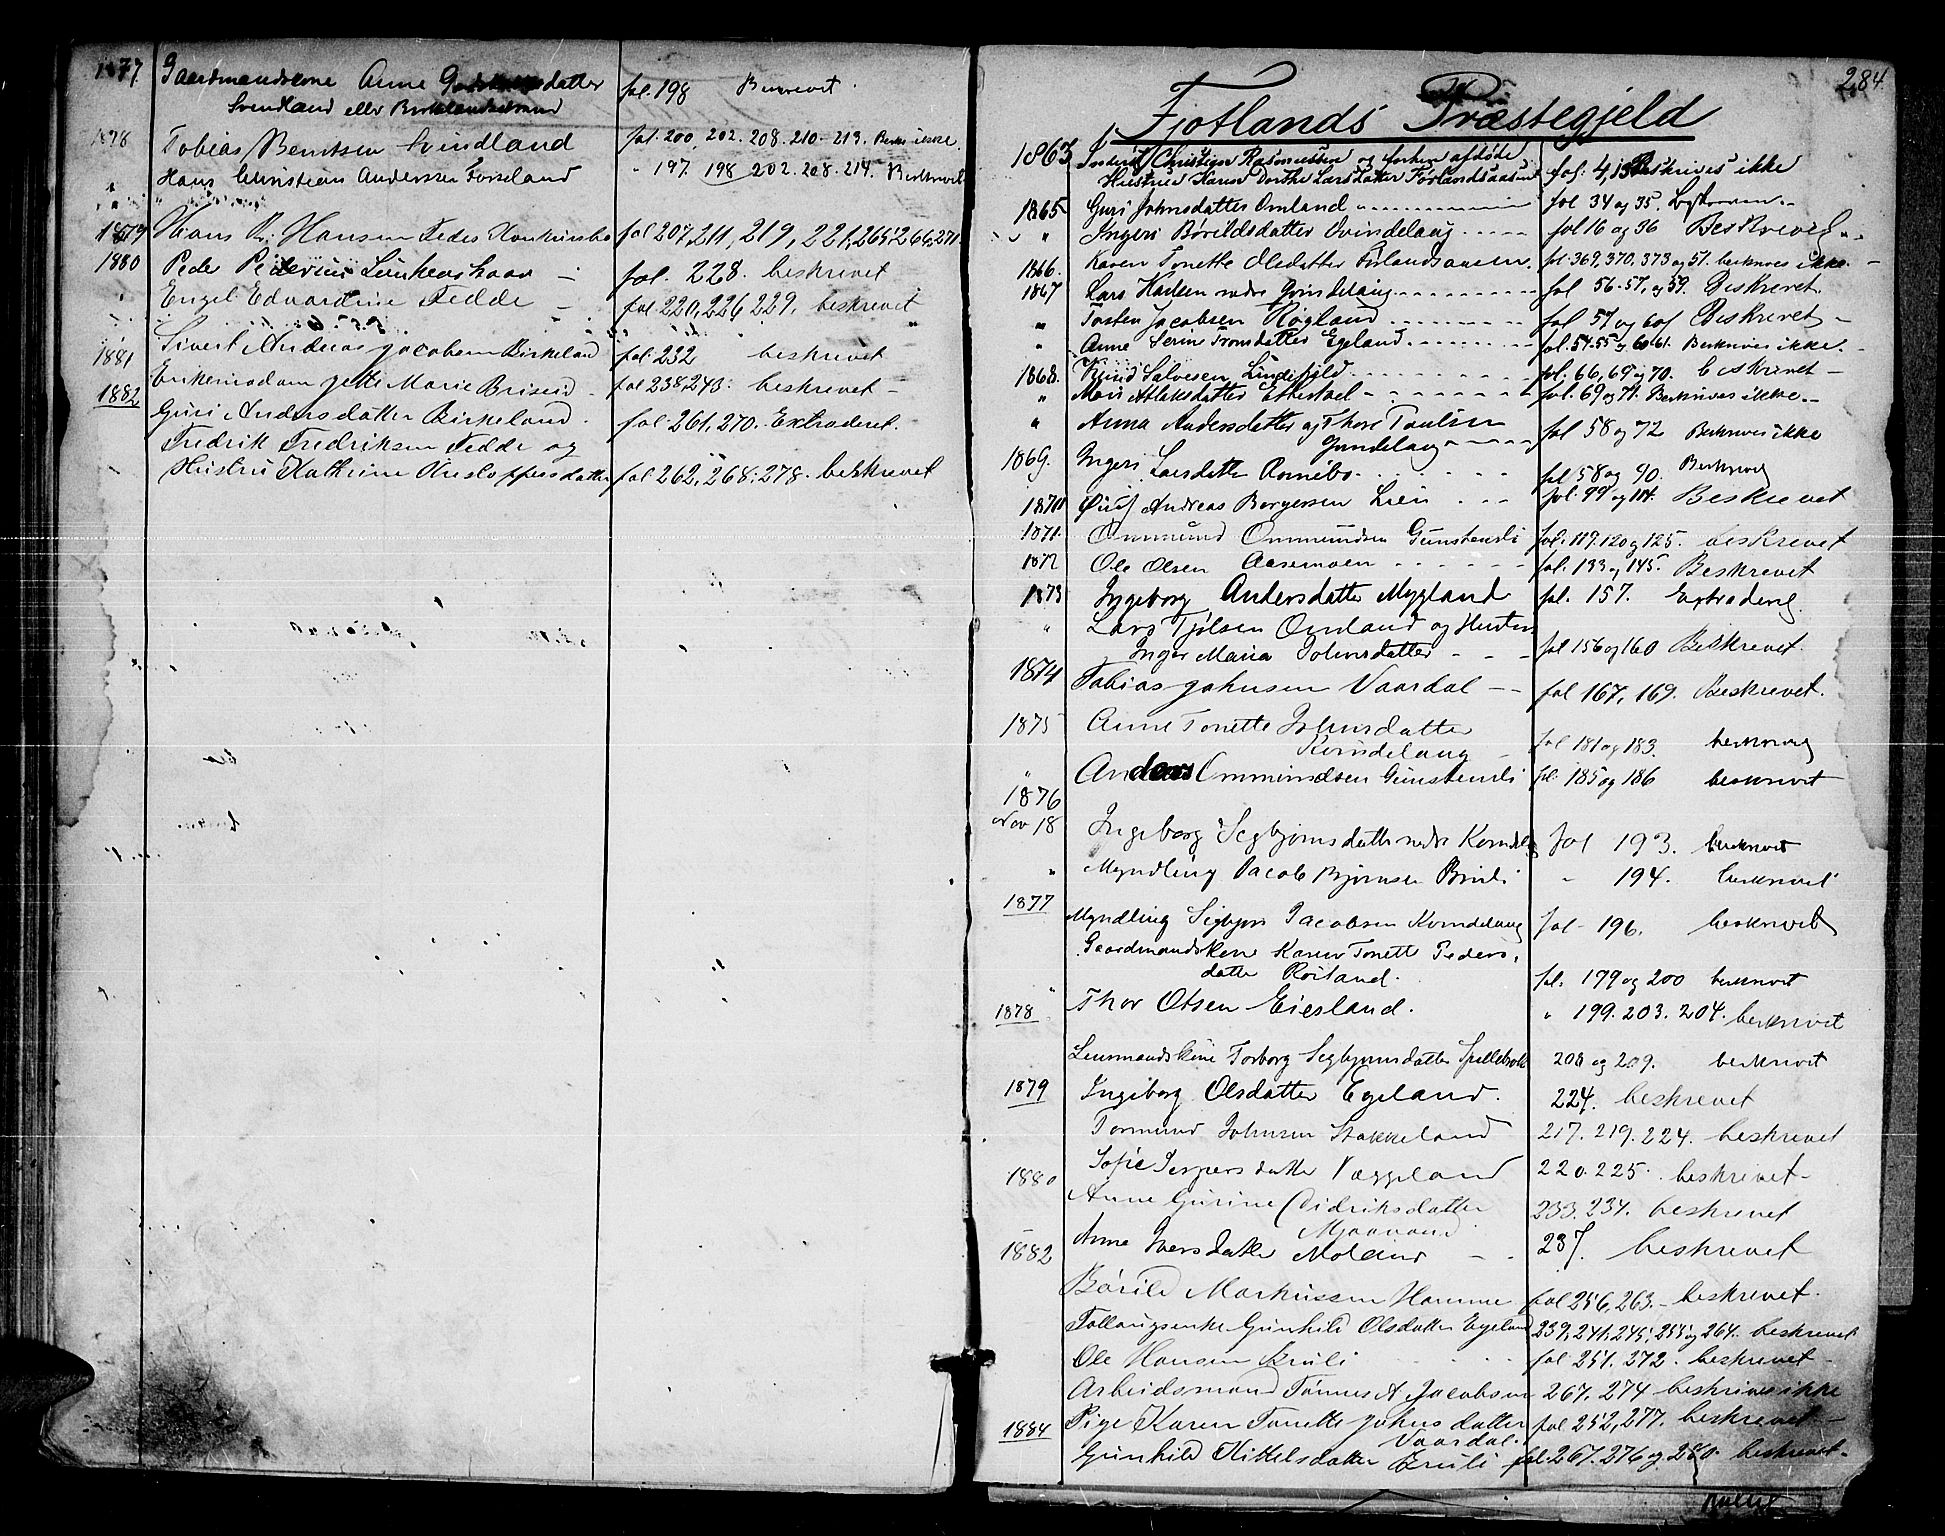 1877 Gaardmandskone Anne datter fol. 198 Beskrevet.
Svindland eller Birkelandsstrand
1878 Tobias Berntsen Svindland fol. 200, 202. 208. 210-213. Beskr. ikke.
" Hans Christian Andersen Forseland " 197. 198 202. 208. 214. Beskrevet
1879 Hans Hansen Fedes fol 207, 211, 219, 221, 265, 266, 271
1880 Peder Pederius fol. 228. beskrevet
" Engel Edvardine Fedde - fol 220, 226 229, beskrevet
1881 Sivert Andreas Jacobsen Birkeland fol. 232 beskrevet
1882 Enkemadam Jette Marie Briseid fol 238, 243. beskrevet -
Guri Andersdatter Birkeland. fol 261, 270. Extraderet.
Fredrik Fredriksen Fedde og
Hustru Kathrine datter fol 262, 268, 278. beskrevet
284
Fjotlands Præstegjeld
1863 Christian Rasmussen og forhen afdøde
Hustrue Karen Dorthe Larsdatter fol. 4, Beskrives ikke
1865 Guri Johnsdatter Omland fol 34 og 35.
" Ingeri Børildsdatter Qvindelaug fol 16 og 36 Beskrevet
1866. Karen Tonette Olsdatter fol. 369, 370, 373 og 51. beskrives ikke. -
1867 Lars Hansen nedre Qvindelaug fol 56. 57, og 59. Beskrevet.
" Torsten Jacobsen Høgland fol 57 og 60 Beskrevet -
" Anne Serine Tronsdatter Egeland fol. 54. 55 og 60. 61. Beskrives ikke.
1868. Salvesen Lindefjeld fol. 66, 69 og 70. Beskrevet -
" Mari Atlaksdatter Netland fol. 69 og 71. Beskrives ikke. -
" Anna Andersdatter og Thore Paulsen
fol 58 og 72 Beskrives ikke
1869. Ingeri Larsdatter fol 58 og 90. Beskrevet
1870 Andreas Børgersen Lien fol. 99 og 104. Beskrevet
1871. Ommund Ommundsen Gunstensli fol. 117. 120 og 125. beskrevet
1872 Ole Olsen Aasemoen fol. 133 og 145. Beskrevet
1873 Ingeborg Andersdatter Mygland fol. 157. Extraderet
" Lars Tjølsen Omland og Hustru
Inger Maria Johnsdatter - - - fol 156 og 160 Beskrevet.
1874 Tobias Johnsen Vaardal - - fol 167, 169. Beskrevet.
1875 Anne Tonette Johnsdatter
Kvindelaug - fol 181 og 183. beskrevet
" Anders Ommundsen Gunstensli fol. 185 og 186 beskrevet
1876
Nov 18 Ingeborg Segbjørnsdatter nedre fol 193. beskrevet
" Myndling Jacob Bjørnsen Bruli " 194. beskrevet
1877 Myndling Sigbjørn Jacobsen Kvindelaug fol - 196. beskrevet
" Gaardmandskone Karen Tonette Peders-
datter Røiland. fol. 179 og 200 beskrevet
1878 Thor Olsen Eiesland. " 199. 203. 204. beskrevet
Lensmandskone Torborg Segbjørnsdatter 206 og 209. beskrevet
1879 Ingeborg Olsdatter Egeland. 224. beskrevet
Tormund Johnsen Stakkeland 217. 219. 224. beskrevet
1880 Sofie Jespersdatter Væggeland 220. 225. beskrevet -
Anne Gurine Didriksdatter
Mjaavand 233. 234. beskrevet
1882 Anne Iversdatter Moland - - 237. beskrevet
Børild Markussen Hamme fol 256, 263. - beskrevet.
Follaugsenke Gunhild Olsdatter Egeland 239, 241, 245, 255 og 264. beskrevet
Ole Hansen Bruli fol 251. 272. beskrevet -
Arbeidsmand Tønnes A Jacobsen 267. 274 beskrives ikke
1884 Pige Karen Tonette Johnsdatter fol 252, 277. beskrevet -
Vaardal.
Gunhild Kittelsdatter Bruli fol. 267. 276 og 280. beskrevet -